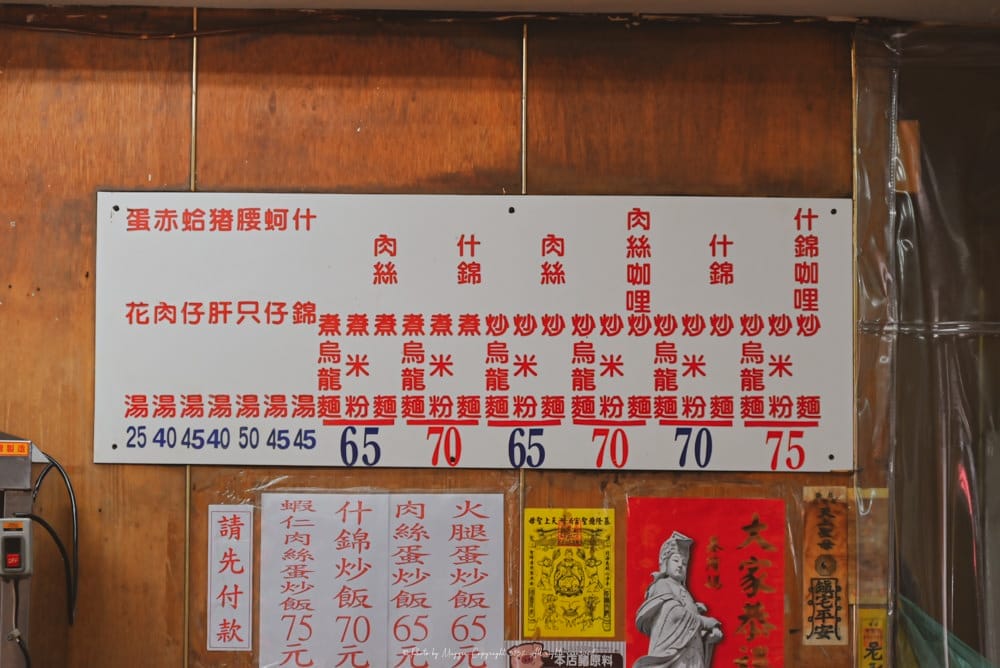 蛋花湯 25
赤肉湯 40
蛤仔湯 45
猪肝湯 40
腰只湯 50
蚵仔湯 45
什錦湯 45
煮烏龍麵
煮米粉
肉絲煮麵
65
煮烏龍麵
煮米粉
什錦煮麵
70
炒烏龍麵
炒米粉
肉絲炒麵
65
炒烏龍麵
炒米粉
肉絲咖哩炒麵
70
炒烏龍麵
炒米粉
什錦炒麵
70
炒烏龍麵
炒米粉
什錦咖哩炒麵
75
請先付款
蝦仁肉絲蛋炒飯75元
什錦炒飯70元
肉絲蛋炒飯65元
火腿蛋炒飯65元
大家恭
天上聖母
鎮宅平安
本店豬原料